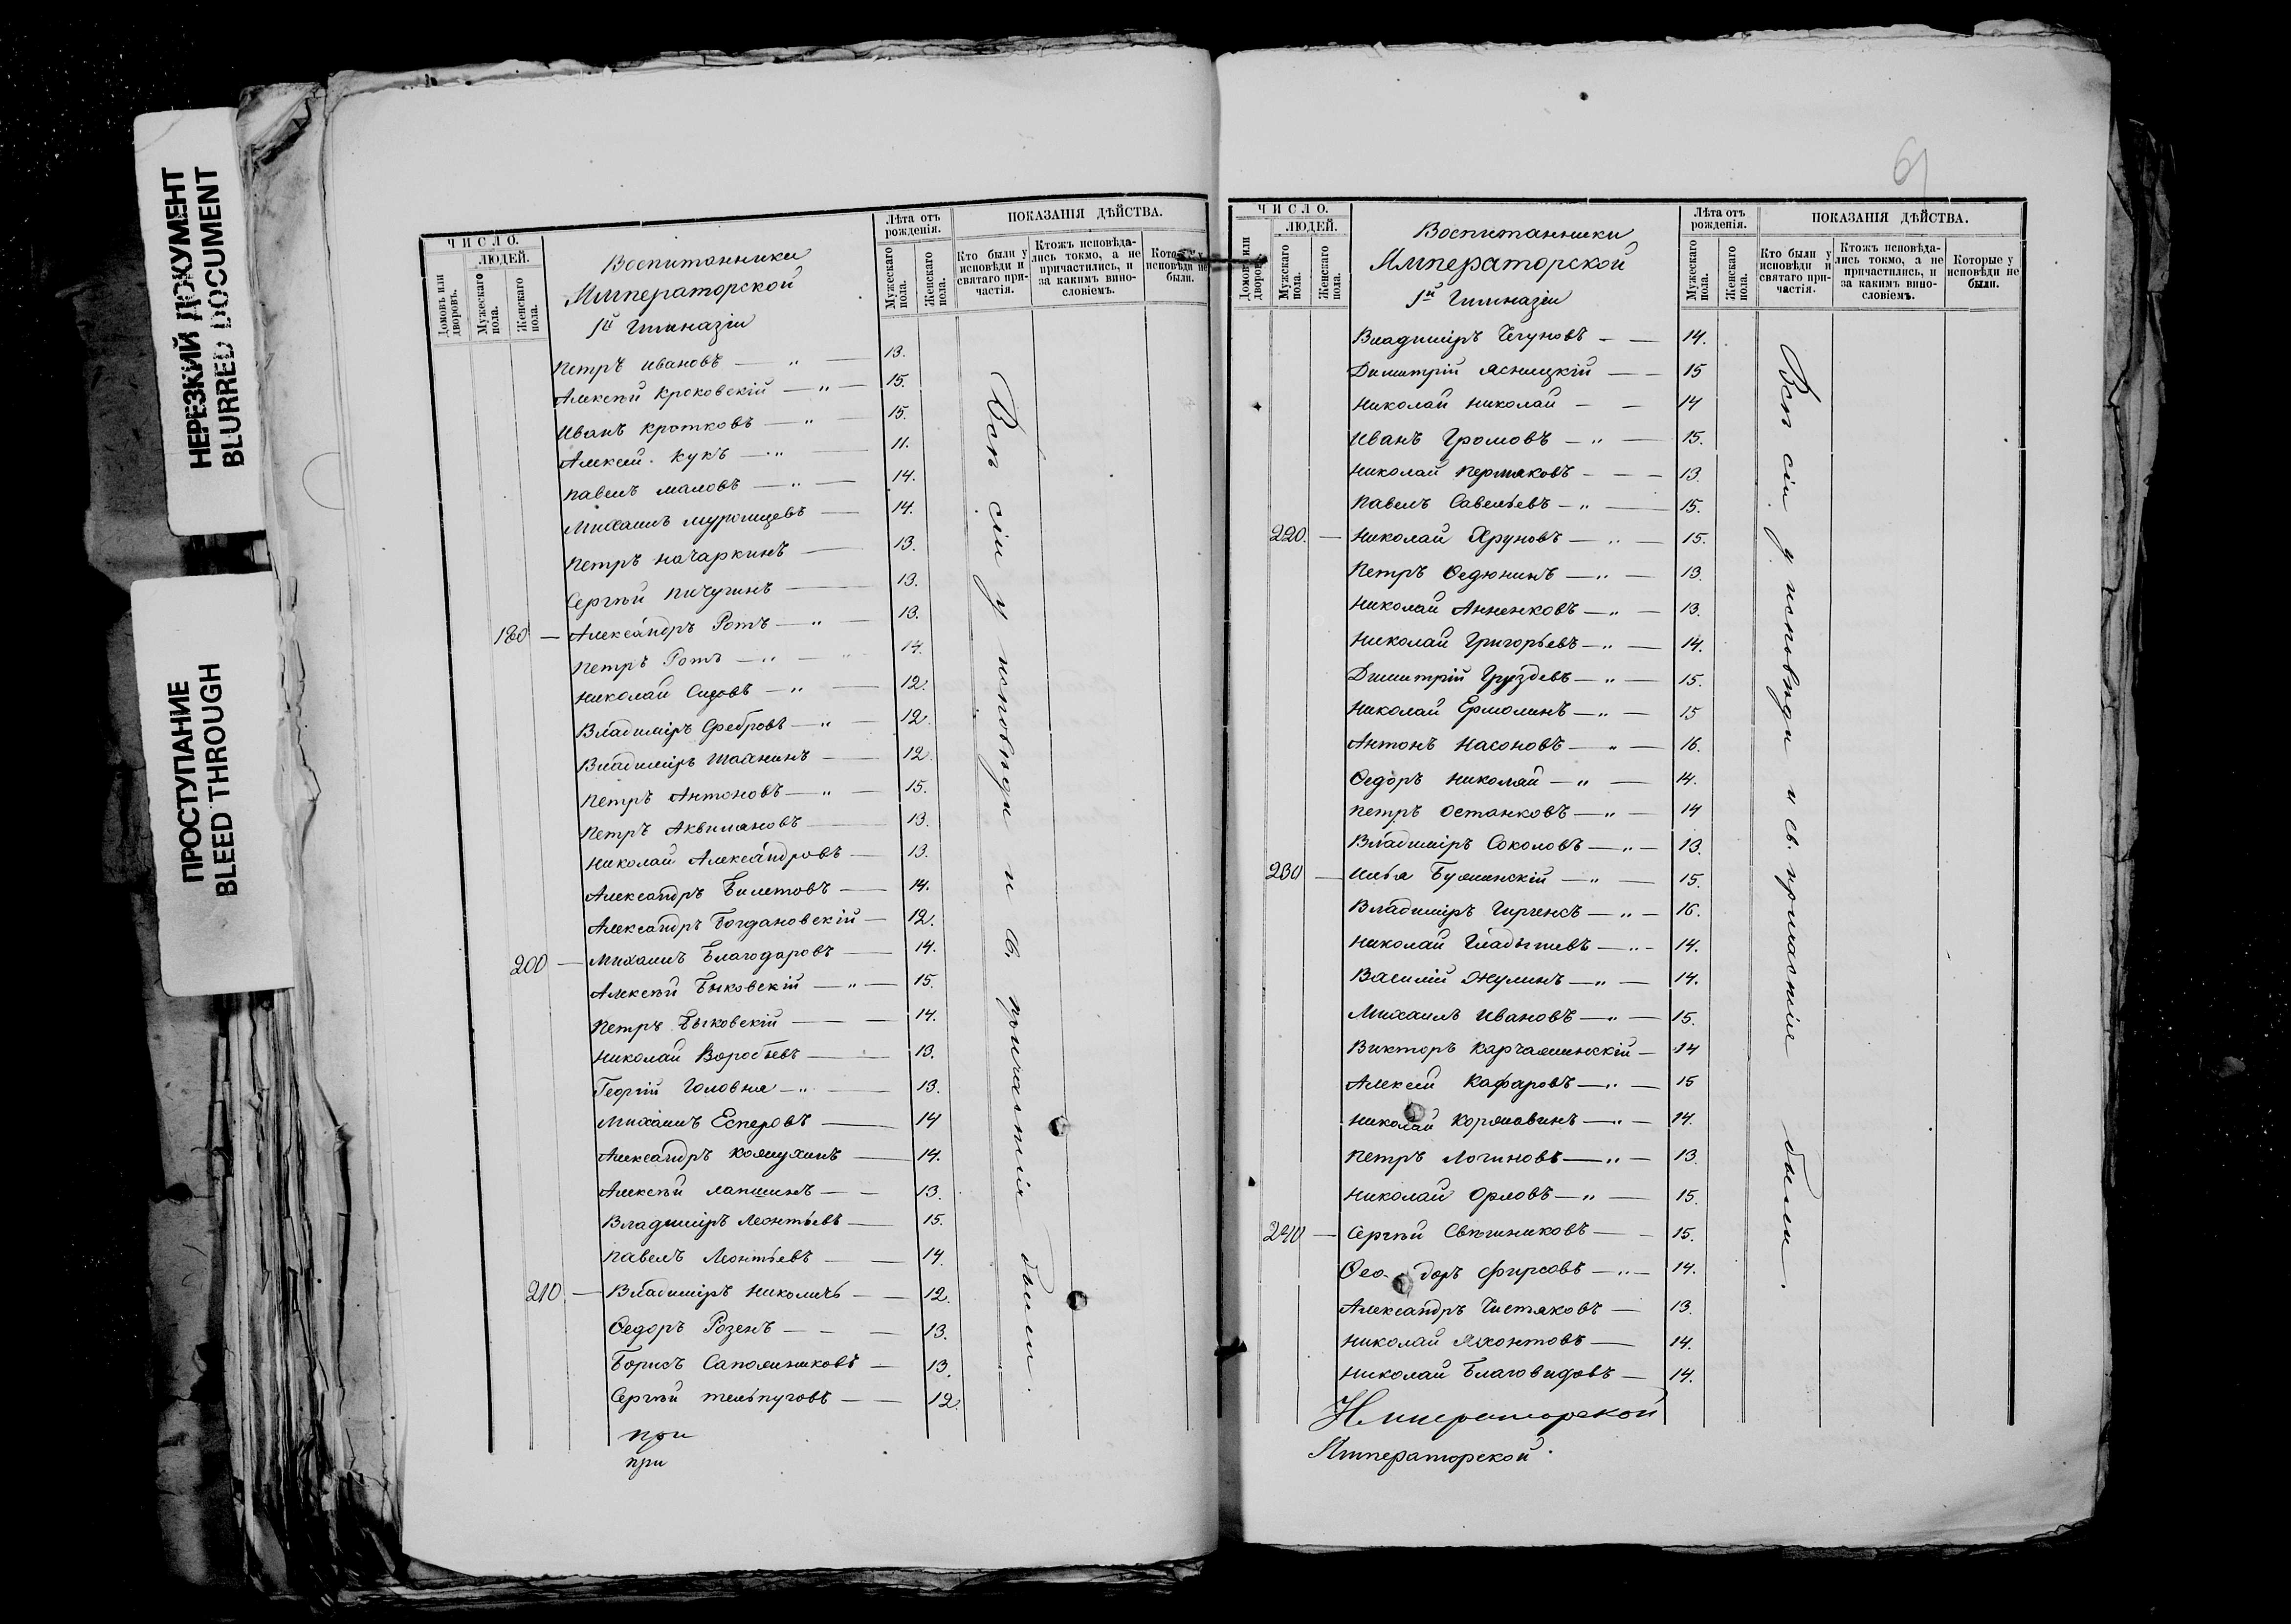 НЕРЕЗКИЙ ДОКУМЕНТ
BLURRED DOCUMENT
ПРОСТУПАНИЕ
BLEED THROUGH
ЧИСЛО.
ЛЮДЕЙ.
Домовъ или дворовъ.
Мужескаго пола.
Женскаго пола.
Воспитанники
Императорской
1й Гимназіи
Лѣта отъ рожденія.
Мужескаго пола.
Женскаго пола.
ПОКАЗАНІЯ ДѢЙСТВА.
Кто были у исповѣди и святаго причастія.
Ктожъ исповѣдались токмо, а не причастились, и за какимъ винословіемъ.
Которые у исповѣди не были.
Петръ Ивановъ — „ — 13.
Алексѣй Кроковскій — „ — 15.
Иванъ Кротковъ — „ — 15.
Алексѣй Кукъ — „ 11.
Павелъ Маловъ — „ — 14.
Михаилъ Муромцевъ — 14.
Петръ Начаркинъ — 13.
Сергѣй Пичугинъ — 13.
190 — Александръ Ротъ — „ — 13.
Петръ Ротъ — „ — 14.
Николай Сидовъ — „ — 12.
Владиміръ Сребровъ — „ — 12.
Владиміръ Шахнинъ — 12.
Петръ Антоновъ — „ — 15.
Петръ Аквиляновъ — 13.
Николай Александровъ — 13.
Александръ Билетовъ — 14.
Александръ Богдановскій — 12.
200 — Михаилъ Благодаровъ — 14.
Алексѣй Быковскій — „ — 15.
Петръ Быковскій — 14.
Николай Воробьевъ — 13.
Георгій Головня — „ — 13.
Михаилъ Есперовъ — 14
Александръ — 14.
Алексѣй Лапшинъ — 13.
Владиміръ Леонтьевъ — 15.
Павелъ Леонтьевъ — 14.
210 — Владиміръ Николичь — 12.
Ѳедоръ Розенъ — 13.
Борисъ Сапожниковъ — 13.
Сергѣй Тельпуговъ — 12.
при
при
Всѣ сіи у исповѣди и св. причастія были.
61
ЧИСЛО.
ЛЮДЕЙ.
Домовъ или дворовъ.
Мужескаго пола.
Женскаго пола.
Воспитанники
Императорской
1й Гимназіи
Лѣта отъ рожденія.
Мужескаго пола.
Женскаго пола.
ПОКАЗАНІЯ ДѢЙСТВА.
Кто были у исповѣди и святаго причастія.
Ктожъ исповѣдались токмо, а не причастились, и за какимъ винословіемъ.
Которые у исповѣди не были.
Владиміръ Чегуновъ — 14.
Димитрій Ясницкій — 15
Николай Николай — 14
Иванъ Громовъ — „ — 15.
Николай Пермяковъ — 13.
Павелъ Савельевъ — „ — 15.
220. — Николай Хруновъ — „ — 15.
Петръ Ѳедюнинъ — „ — 13.
Николай Анненковъ — „ — 13.
Николай Григорьевъ — „ — 14.
Димитрій Груздевъ — „ — 15.
Николай Ермолинъ — „ — 15
Антонъ Насоновъ — „ — 16.
Ѳедоръ Николай — „ — 14.
Петръ Останковъ — „ — 14
Владиміръ Соколовъ — „ — 13.
230 — Илья — „ — 15.
Владиміръ Гиргенсъ — „ — 16.
Николай Гладышевъ — „ — 14.
Василій Жулинъ — „ — 14.
Михаилъ Ивановъ — „ — 15.
Викторъ — 14
Алексѣй Кафаровъ — „ — 15
Николай — „ — 14.
Петръ Логиновъ — „ — 13.
Николай Орловъ — „ — 15.
240 — Сергѣй Свѣшниковъ — 15.
Ѳеодоръ Фирсовъ — „ — 14.
Александръ Чистяковъ — 13.
Николай Яхонтовъ — 14.
Николай Благовидовъ — 14.
Императорской
Императорской
Всѣ сіи у исповѣди и св. причастія были.